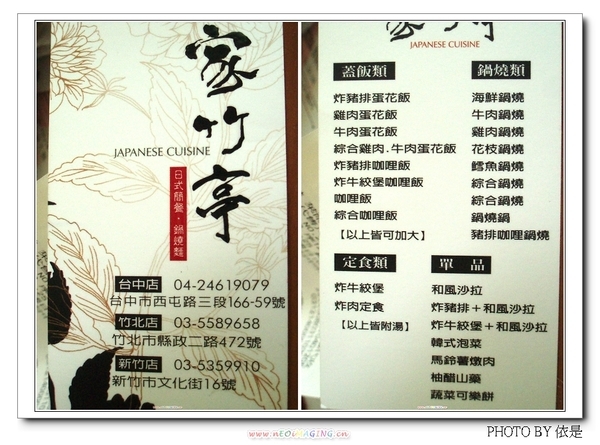 家竹亭
JAPANESE CUISINE
日式簡餐・鍋燒麵
台中店 04-24619079
台中市西屯路三段166-59號
竹北店 03-5589658
竹北市縣政二路472號
新竹店 03-5359910
新竹市文化街16號
JAPANESE CUISINE
蓋飯類
炸豬排蛋花飯
雞肉蛋花飯
牛肉蛋花飯
綜合雞肉.牛肉蛋花飯
炸豬排咖哩飯
炸牛絞堡咖哩飯
咖哩飯
綜合咖哩飯
【以上皆可加大】
鍋燒類
海鮮鍋燒
牛肉鍋燒
雞肉鍋燒
花枝鍋燒
鱈魚鍋燒
綜合鍋燒
綜合鍋燒
鍋燒鍋
豬排咖哩鍋燒
定食類
炸牛絞堡
炸肉定食
【以上皆附湯】
單品
和風沙拉
炸豬排+和風沙拉
炸牛絞堡+和風沙拉
韓式泡菜
馬鈴薯燉肉
柚醋山藥
蔬菜可樂餅
www.NEOIMAGING.cn
PHOTO BY 依是